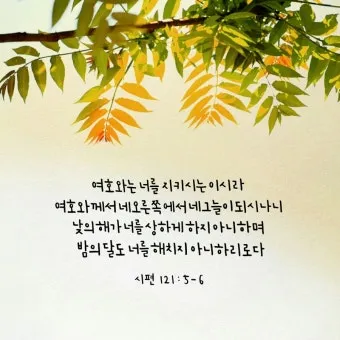 여호와는 너를 지키시는 이시라
여호와께서 네 오른쪽에서 네 그늘이 되시나니
낮의 해가 너를 상하게 하지 아니하며
밤의 달도 너를 해치지 아니하리로다
시편 121:5-6